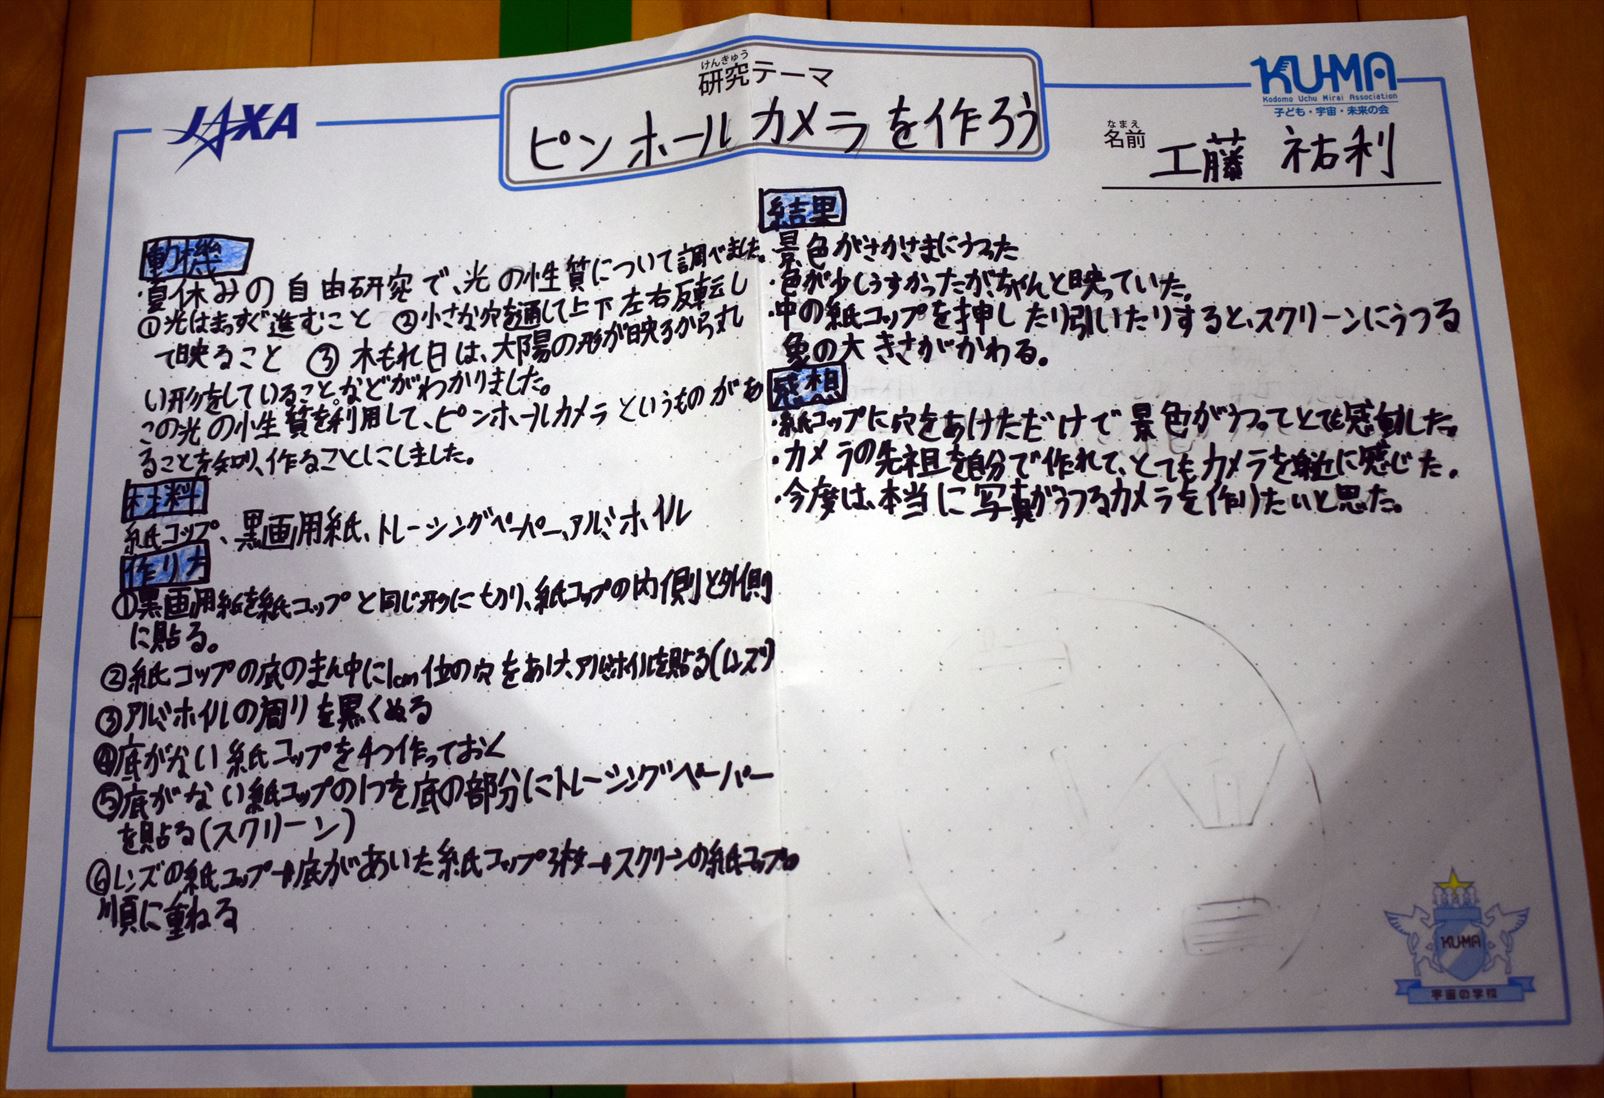 JAXA
けんきゅう
研究テーマ
ピンホールカメラを作ろう
KU-MA
Kodomo Uchu Mirai Association
子ども・宇宙・未来の会
なまえ
名前
工藤 祐利
動機
・夏休みの自由研究で、光の性質について調べました。
①光はまっすぐ進むこと ②小さな穴を通して上下左右反転し
て映ること ③木もれ日は、太陽の形が映るから丸
い形をしていること。などがわかりました。
この光の性質を利用して、ピンホールカメラというものがあ
ることを知り、作ることにしました。
材料
紙コップ、黒画用紙、トレーシングペーパー、アルミホイル
作り方
①黒画用紙を紙コップと同じ形に切り、紙コップの内側と外側
に貼る。
②紙コップの底のまん中に1cm位の穴をあけ、アルミホイルを貼る(レンズ)
③アルミホイルの周りを黒くぬる
④底がない紙コップを4つ作っておく
⑤底がない紙コップの1つを底の部分にトレーシングペーパー
を貼る(スクリーン)
⑥レンズの紙コップ→底があいた紙コップ3枚→スクリーンの紙コップの
順に重ねる
結果
・景色がさかさまにうつった
・色が少しうすかったがちゃんと映っていた。
・中の紙コップを押したり引いたりすると、スクリーンにうつる
象の大きさがかわる。
感想
・紙コップに穴をあけただけで景色がうつってとても感動した。
・カメラの先祖を自分で作れて、とてもカメラを身近に感じた。
・今度は、本当に写真がうつるカメラを作りたいと思った。
KUMA
宇宙の学校